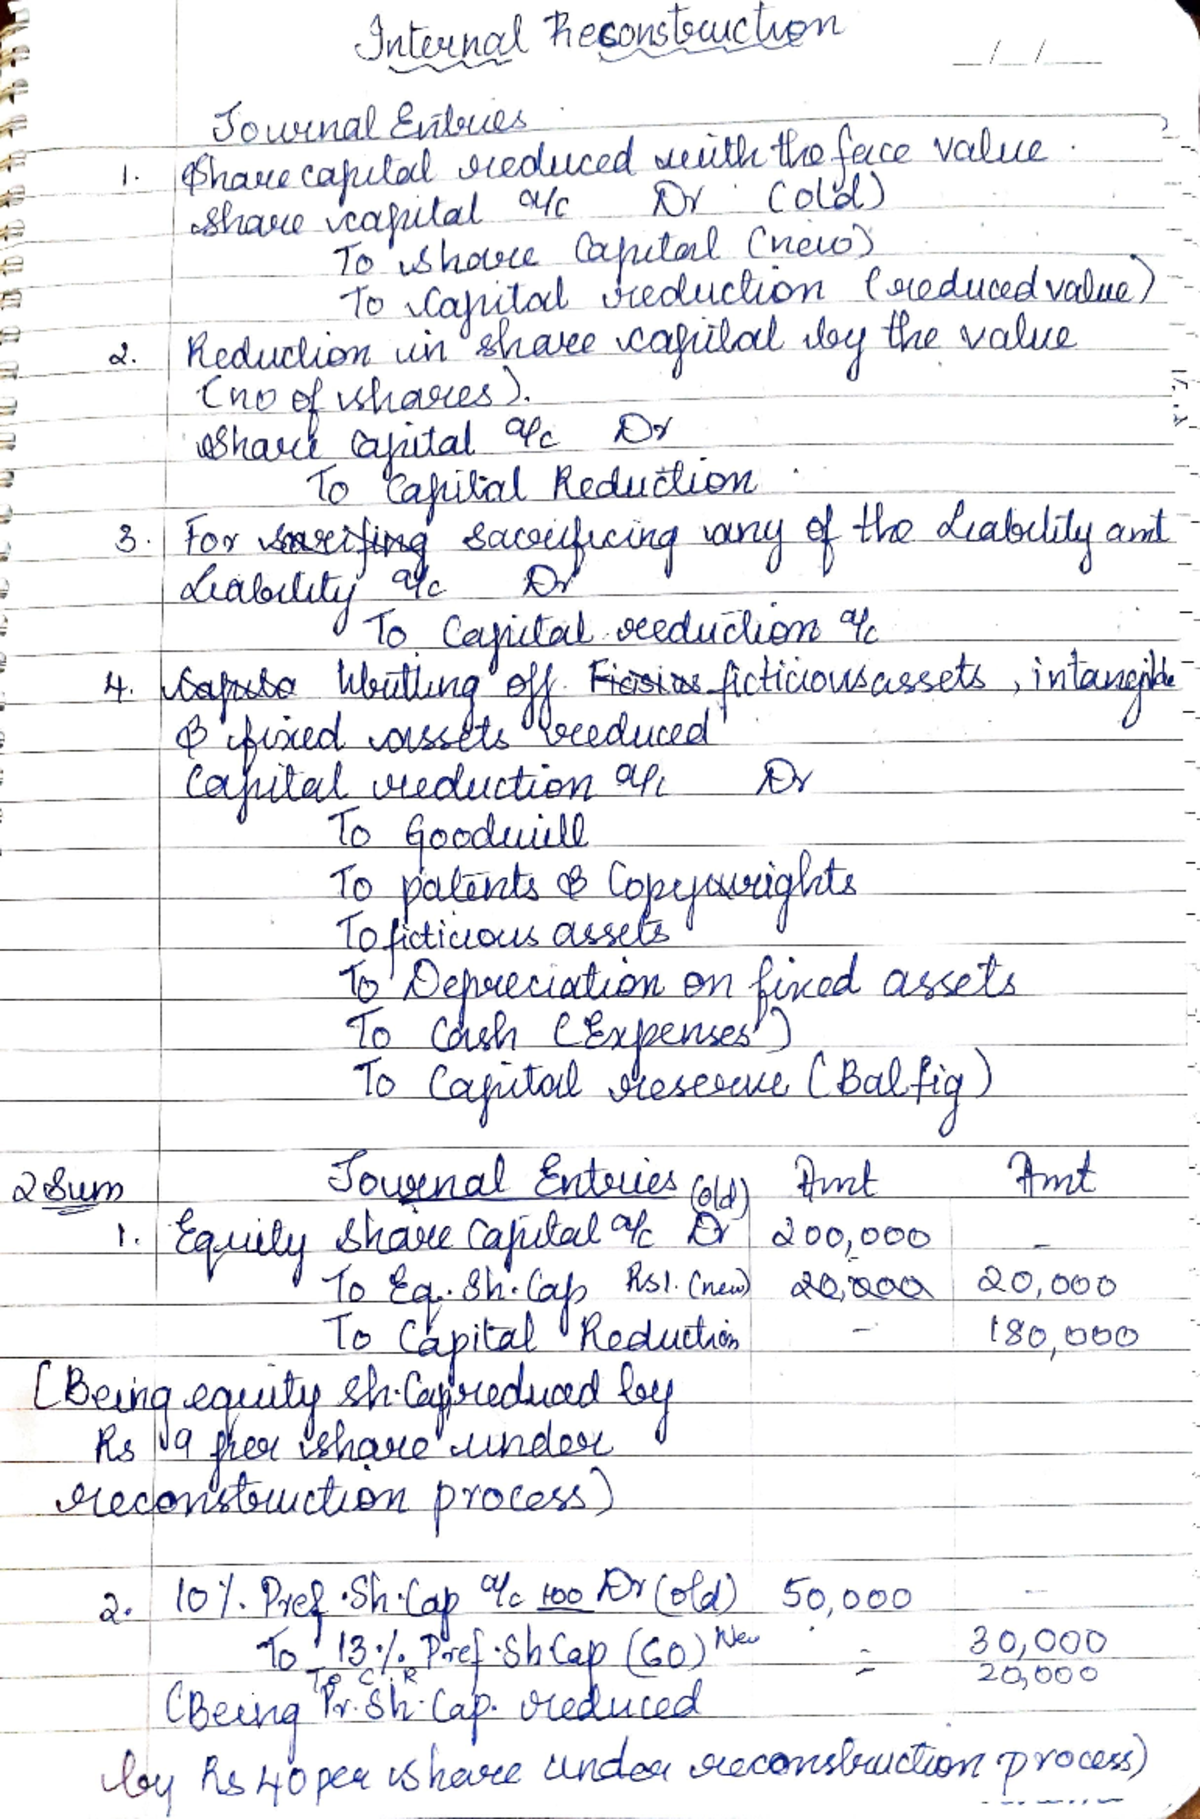 Internal Reconstruction
_/_/__
Journal Entries
1. Share capital reduced with the face value.
share capital a/c Dr (old)
To share Capital (new)
To Capital reduction (reduced value)
2. Reduction in share capital by the value
(no of shares).
Share capital a/c Dr
To Capital Reduction
3. For sacrificing any of the Liability amt
Liability a/c Dr
To Capital reduction a/c
4. Writting off ficticious assets, intangible
& fixed assets reduced
Capital reduction a/c Dr
To Goodwill
To patents & Copyrwrights
To ficticious assets
To Depreciation on fixed assets
To Cash (Expenses)
To Capital reserve (Bal fig)
2 Sum Journal Entries Amt Amt
1. Equity Share Capital a/c Dr (old) 200,000 -
To Eq. Sh. Cap Rs 1. (new) 20,000 20,000
To Capital Reduction - 180,000
(Being equity sh. Cap reduced by
Rs 9 per share under
reconstruction process)
2. 10%. Pref. Sh. Cap a/c 100 Dr (old) 50,000 -
To 13%. Pref. Sh Cap (60) New - 30,000
To C. R - 20,000
(Being Pr. Sh. Cap. reduced
by Rs 40 per share under reconstruction process)